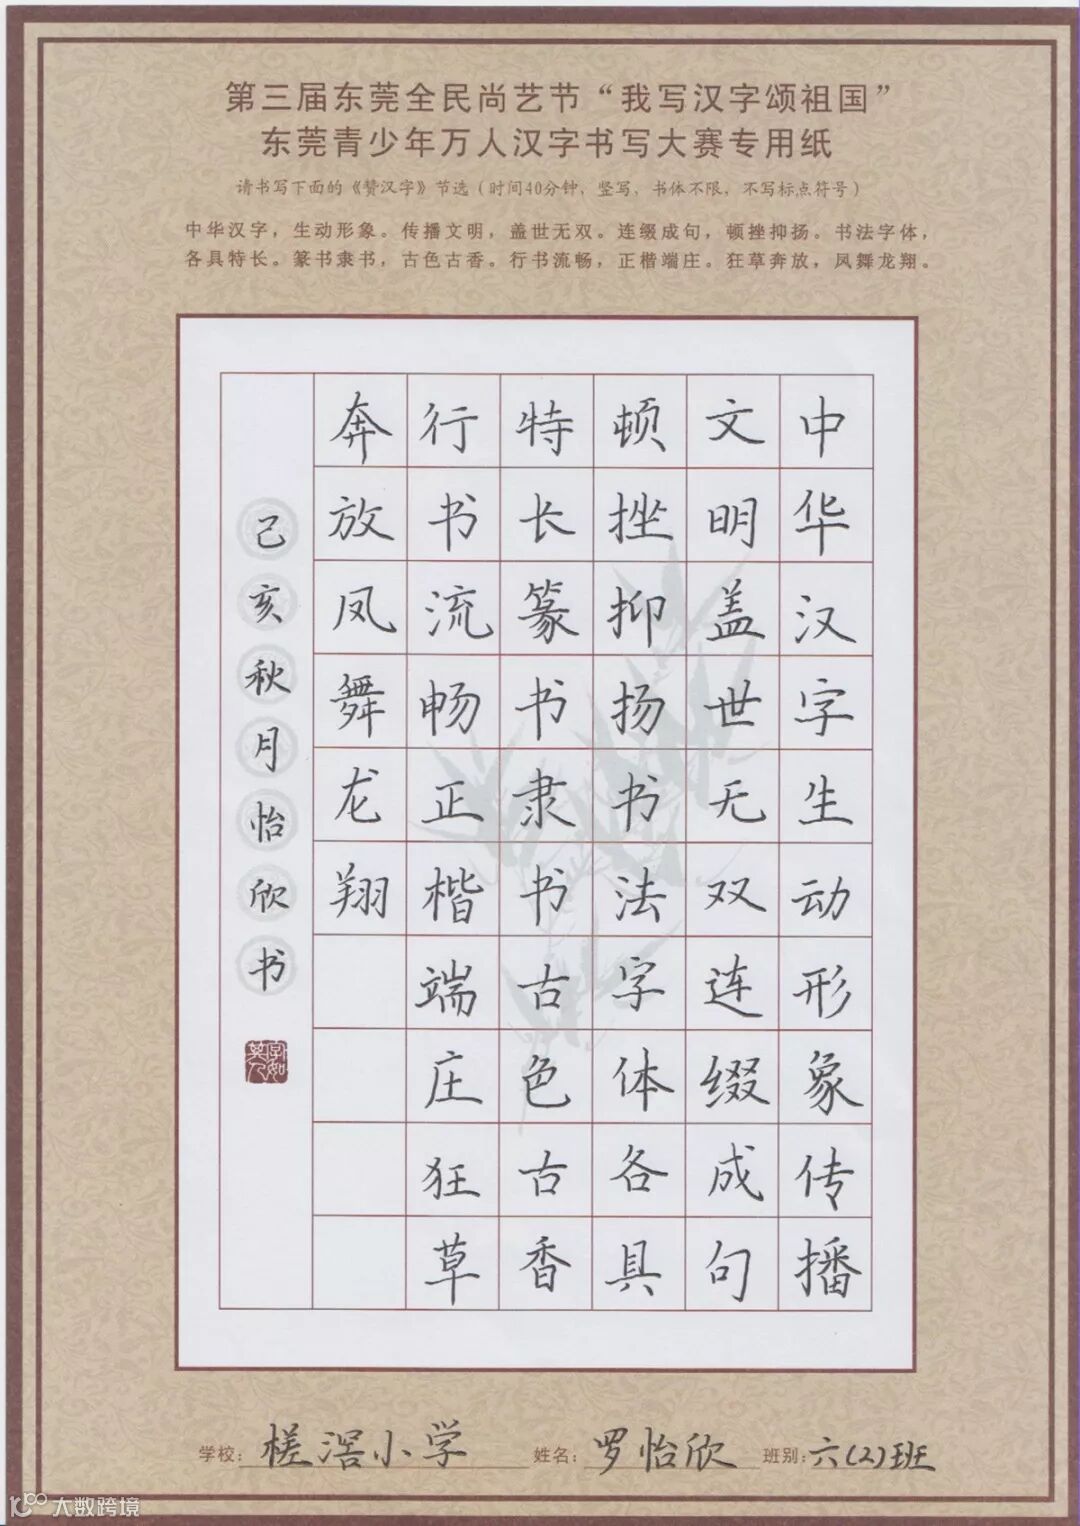 第三届东莞全民尚艺节“我写汉字颂祖国”
东莞青少年万人汉字书写大赛专用纸
请书写下面的《赞汉字》节选（时间40分钟，竖写，书体不限，不写标点符号）
中华汉字，生动形象。传播文明，盖世无双。连缀成句，顿挫抑扬。书法字体，
各具特长。篆书隶书，古色古香。行书流畅，正楷端庄。狂草奔放，凤舞龙翔。
中华汉字生动形象传播
文明盖世无双连缀成句
顿挫抑扬书法字体各具
特长篆书隶书古色古香
行书流畅正楷端庄狂草
奔放凤舞龙翔
己亥秋月怡欣书
字如其人
学校：槎滘小学 姓名：罗怡欣 班别：六(2)班
大数跨境